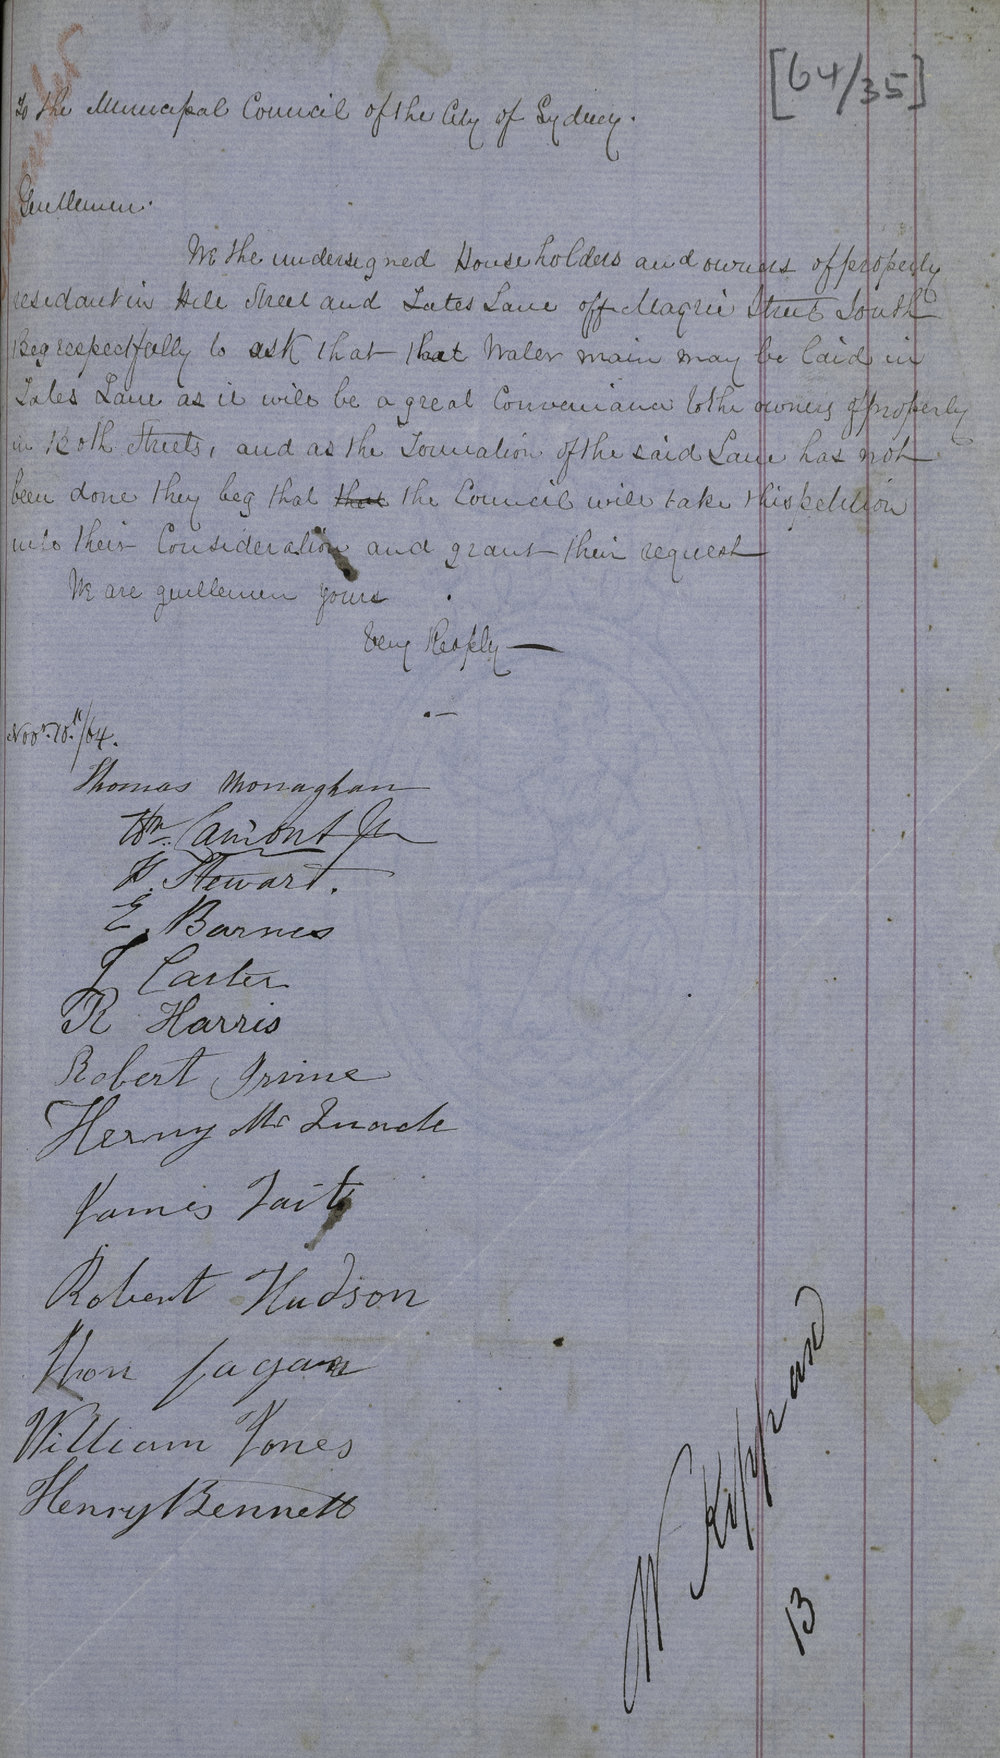 [64/35]
To the Municipal Council of the City of Sydney.
Gentlemen.
We the undersigned Householders and owners of property
residant in Hill Street and Tates Lane off Maqrie Street South
Beg respectfully to ask that that Water main may be laid in
Tates Lane as it will be a great Conveniance to the owners of property
in Both Streets, and as the Formation of the said Lane has not
been done they beg that that the Council will take this petition
into their Consideration and grant their request
We are gentlemen yours
Very Respfly
Novr. 10th/64.
Thomas Monaghan
Wm. Lamont Jn
Stewart.
E. Barnes
J Carter
R Harris
Robert Irvine
Henry Mc Quade
James Tait
Robert Hudson
Thos Fagan
William Jones
Henry Bennett
W Kippax
13